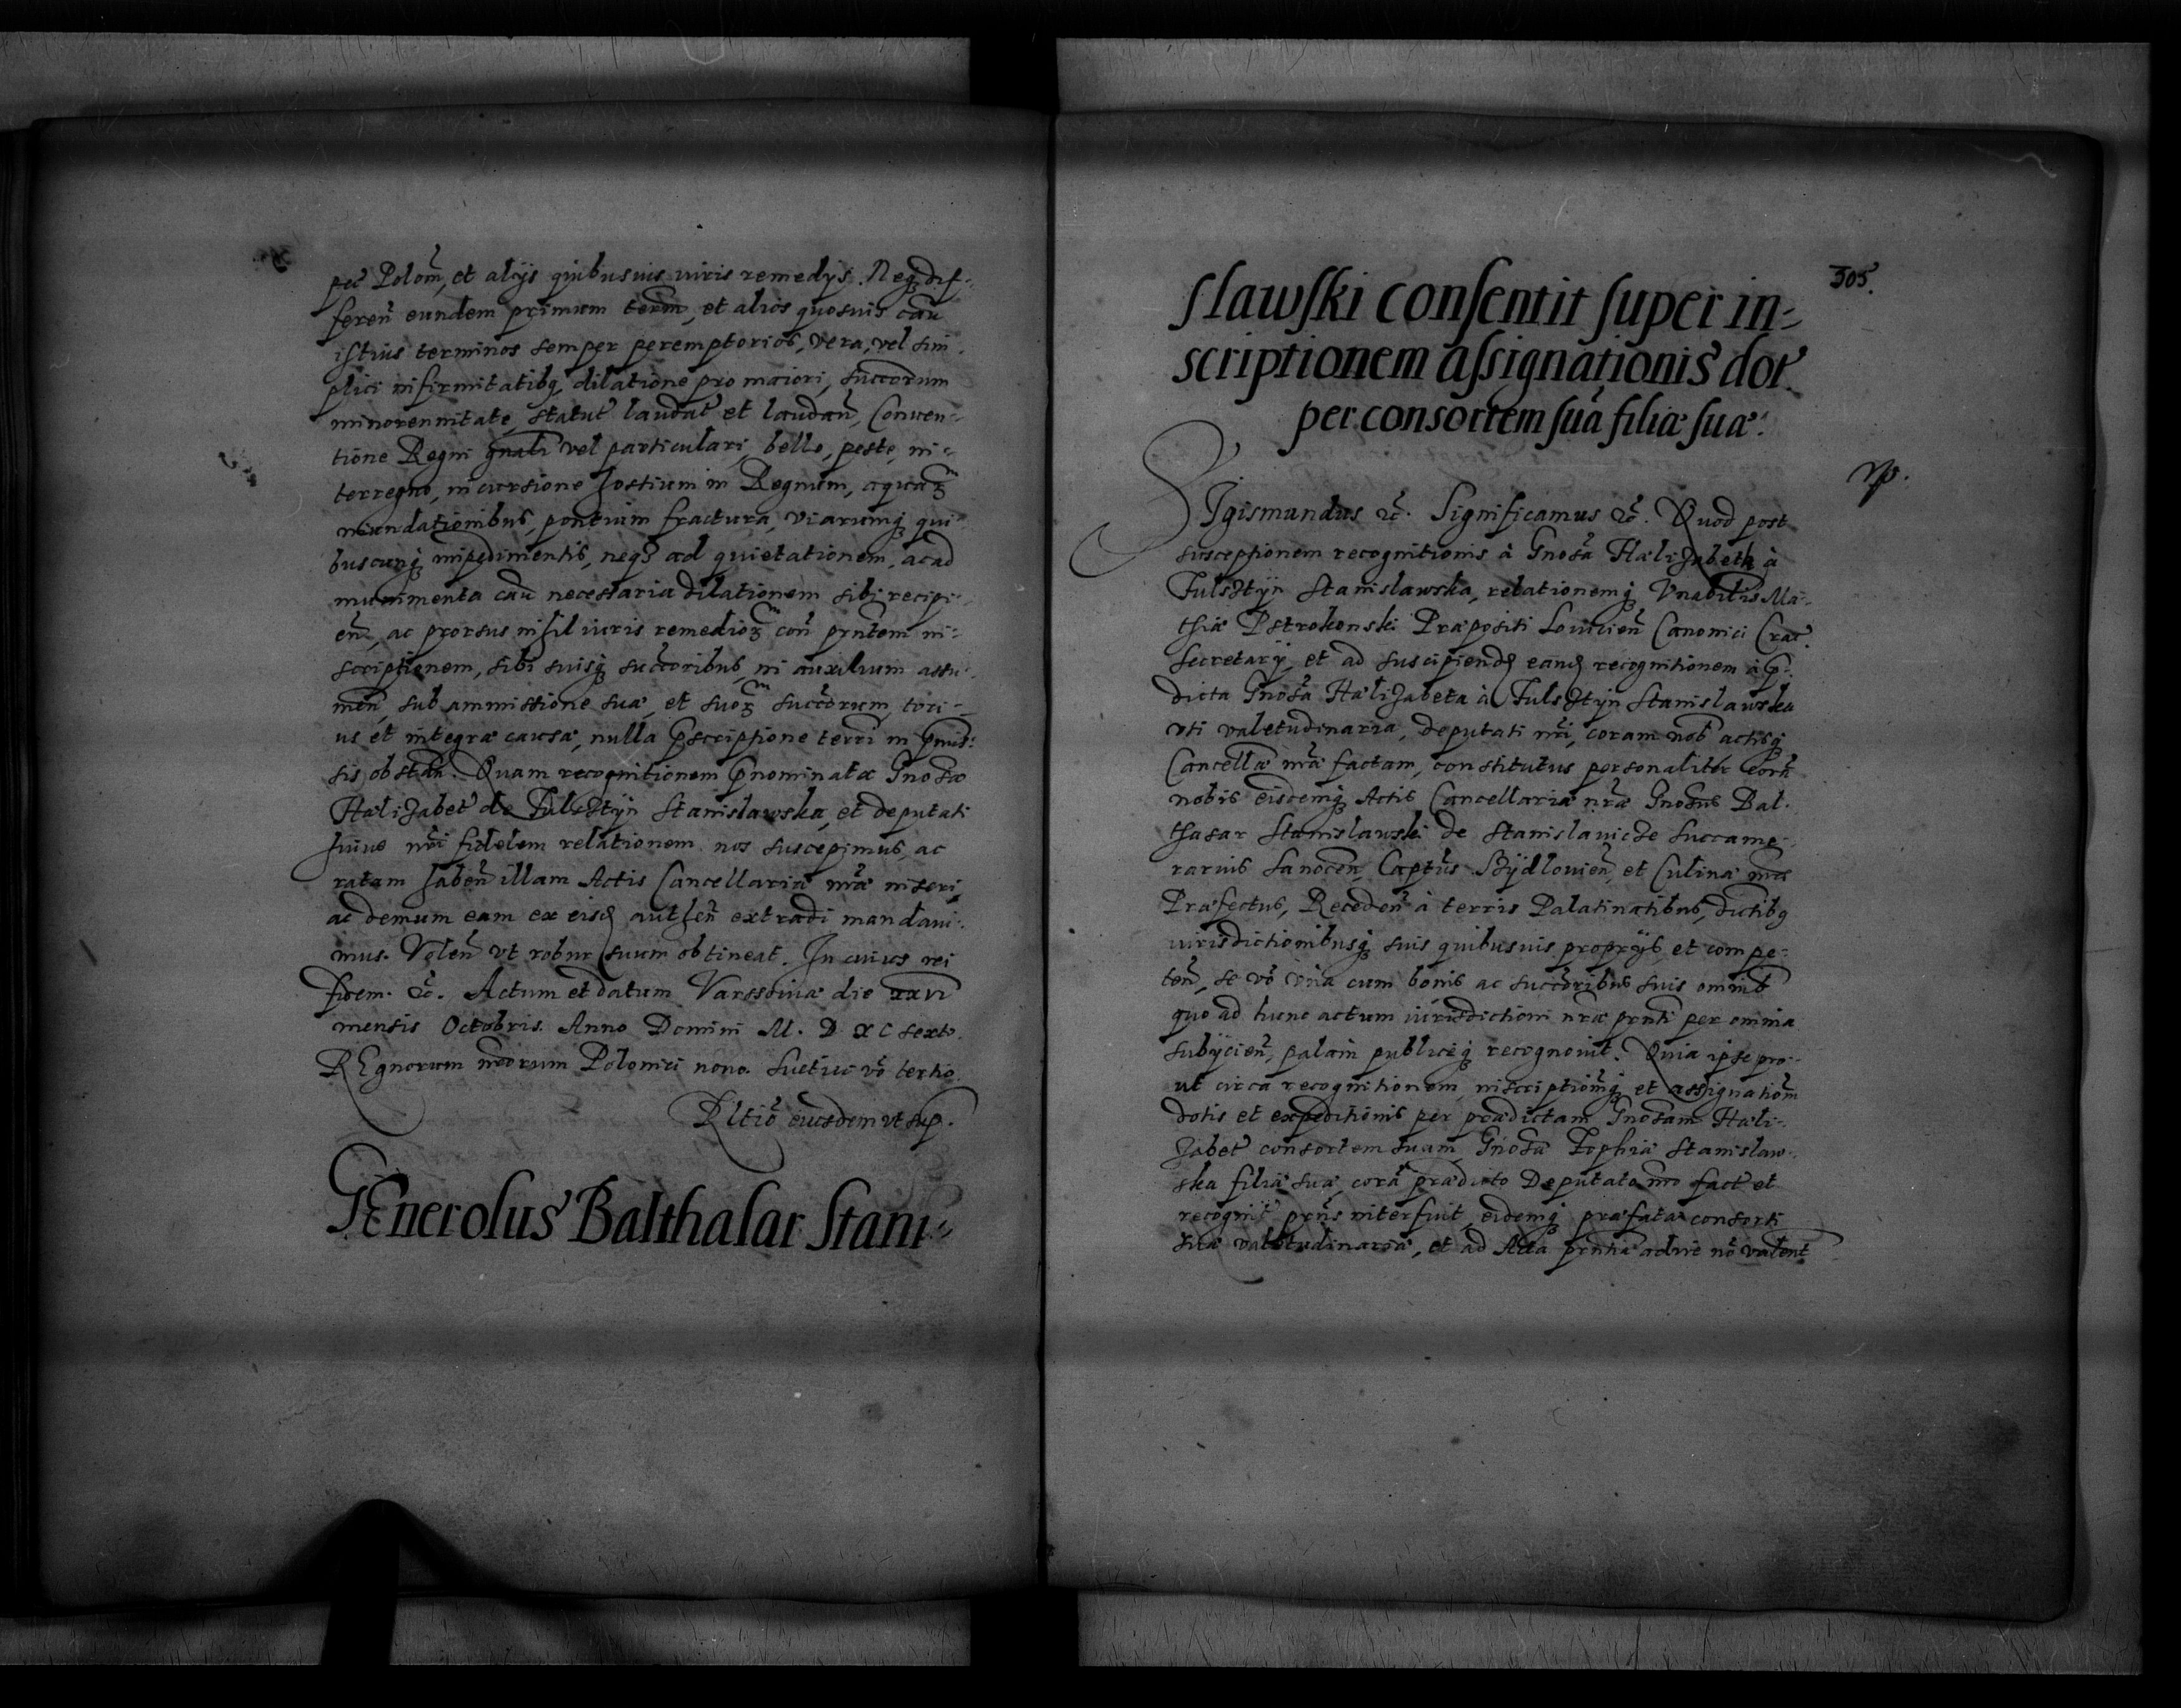 per Polom̃, et alÿs quibusuis iuris remedÿs. Neq dif-
feren̄ eundem primum term̄, et alios quosuis cau̅
istius terminos semper peremptorios, vera, vel sim
plici infirmitatibq, dilatione pro maiori, succorum
minorennitate, statut laudat et laudan̄, Conuen-
tione Regni gnali vel particulari, bello, peste, in-
terregno, incursione hostium in Regnum, aquarꝫ
inundationibus, pontium fractura, viarumq qui
buscunq impedimentis, neqꝫ ad quietationem, ac ad
munimenta cau̅ necessaria dilationem sibi recipi-
en̄, ac prorsus nihil iuris remediorꝫ con̄ prn̄tem in-
scriptionem, sibi suisq succoribus, in auxilium assu-
men̄, sub ammissione suæ, et suorꝫ succorum, toti-
us et integræ causæ, nulla p̄scriptione terri in p̄mis-
sis obstan̄. Quam recognitionem p̄nominatæ Gnosæ
Hælizabet de Fulsztÿn Stanislawska, et deputati
huius nr̄i fidelem relationem nos suscepimus, ac
ratam haben̄ illam Actis Cancellariæ nr̄æ inseri,
ac demum eam ex eisd authen̄ extradi mandaui-
mus. Volen̄ vt robur suum obtineat. In cuius rei
fidem. &c̄. Actum et datum Varssouiæ die xxvi
mensis Octobris. Anno Domini M. D XC sexto.
REgnorum nr̄orum Polonici nono. Suetiæ vō tertio.
Rltiō eiusdem vt sup.
GEnerosus Balthasar Stani-
305.
slawski consentit super in-
scriptionem assignationis dot.
per consortem suā filiæ suæ.
SIgismundus &c̄. Significamus &c̄. Quod post
susceptionem recognitionis à Gnosā Hælizabeth à
Fulsztÿn Stanislawska, relationemq Vnabilis Ma-
thiæ Pstrokonski Præpositi Louicien̄ Canonici Crac̄.
Secretarÿ, et ad suscipiend eand recognitionem à p̄-
dicta Gnosā Hælizabeta à Fulsztÿn Stanislawska
vti valetudinaria, deputati nr̄i, coram nob actisq
Cancellæ nr̄æ factam, constitutus personaliter corā
nobis eisdemq Actis Cancellariæ nr̄æ Gnosus Bal-
thasar Stanislawski de Stanislauicze Succame-
rarius Sanocen̄, Captus Bÿdlouien̄, et Culinæ nr̄æ
Præfectus, Receden̄ à terris Palatinatibus, dictibq
iurisdictionibusq suis quibusuis proprÿs et compe-
ten̄, se vō vna cum bonis ac succoribus suis omnib
quo ad hunc actum iurisdictioni nr̄æ prn̄ti per omnia
subÿcien̄, palam publiceq recognouit. Quia ipse pro-
ut circa recognitionem inscriptiōmq et assignatiōm
dotis et expeditionis per prædictam Gnosam Hæli-
zabet consortem suam Gnosæ Zophiæ Stanislaw-
ska filiæ suæ, corā prædicto Deputato nr̄o fact et
recognit prn̄s interfuit, eidemq præfatæ consorti
suæ valetudinariæ, et ad Acta prn̄tia adire nō valent